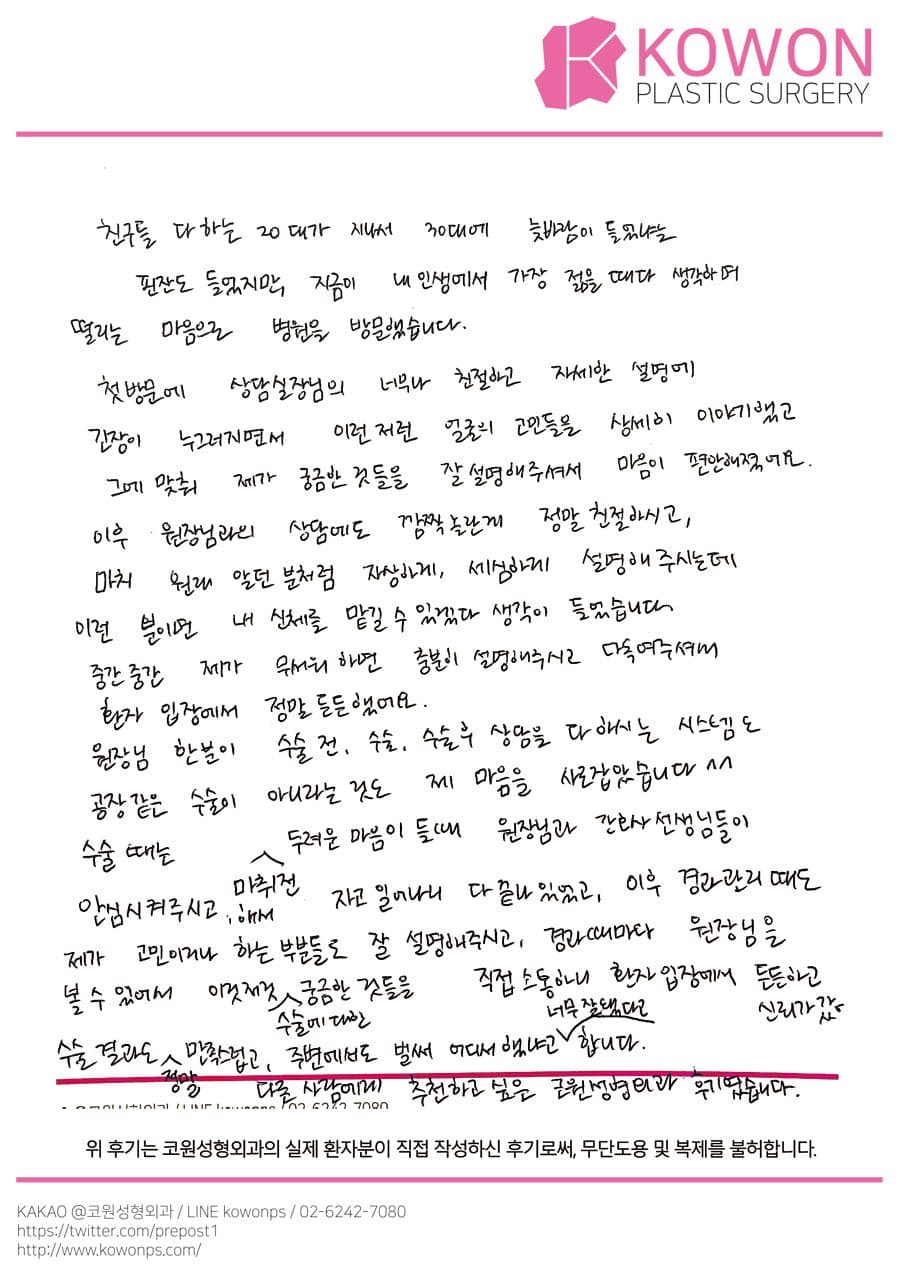 KOWON
PLASTIC SURGERY
친구들 다 하는 20대가 지나서 30대에 늦바람이 들었냐는
핀잔도 들었지만, 지금이 내 인생에서 가장 젊을 때다 생각하며
떨리는 마음으로 병원을 방문했습니다.
첫 방문에 상담실장님의 너무나 친절하고 자세한 설명에
긴장이 누그러지면서 이런저런 얼굴의 고민들을 상세히 이야기했고
그에 맞춰 제가 궁금한 것들을 잘 설명해주셔서 마음이 편안해졌어요.
이후 원장님과의 상담에도 깜짝 놀란게 정말 친절하시고,
마치 원래 알던 분처럼 자상하게, 세심하게 설명해 주시는데
이런 분이면 내 신체를 맡길 수 있겠다 생각이 들었습니다
중간중간 제가 무서워 하면 충분히 설명해주시고 다독여주셔서
환자 입장에서 정말 든든했어요.
원장님 한분이 수술 전, 수술, 수술후 상담을 다 하시는 시스템도
공장 같은 수술이 아니라는 것도 제 마음을 사로잡았습니다 ^^
수술 때는 두려운 마음이 들때 원장님과 간호사 선생님들이
안심시켜주시고, 마취전 해서 자고 일어나니 다 끝나 있었고, 이후 경과관리 때도
제가 고민이거나 하는 부분들로 잘 설명해주시고, 경과때마다 원장님을
볼 수 있어서 이것저것 궁금한 것들을 직접 소통하니 환자 입장에서 든든하고
수술에 대한 너무 잘됐다고 신뢰가 갔
수술 결과도 만족스럽고, 주변에서도 벌써 어디서 했냐고 합니다.
정말 다른 사람에게 추천하고 싶은 코원성형외과 후기였습니다.
위 후기는 코원성형외과의 실제 환자분이 직접 작성하신 후기로써, 무단도용 및 복제를 불허합니다.
KAKAO @코원성형외과 / LINE kowonps / 02-6242-7080
https://twitter.com/prepost1
http://www.kowonps.com/